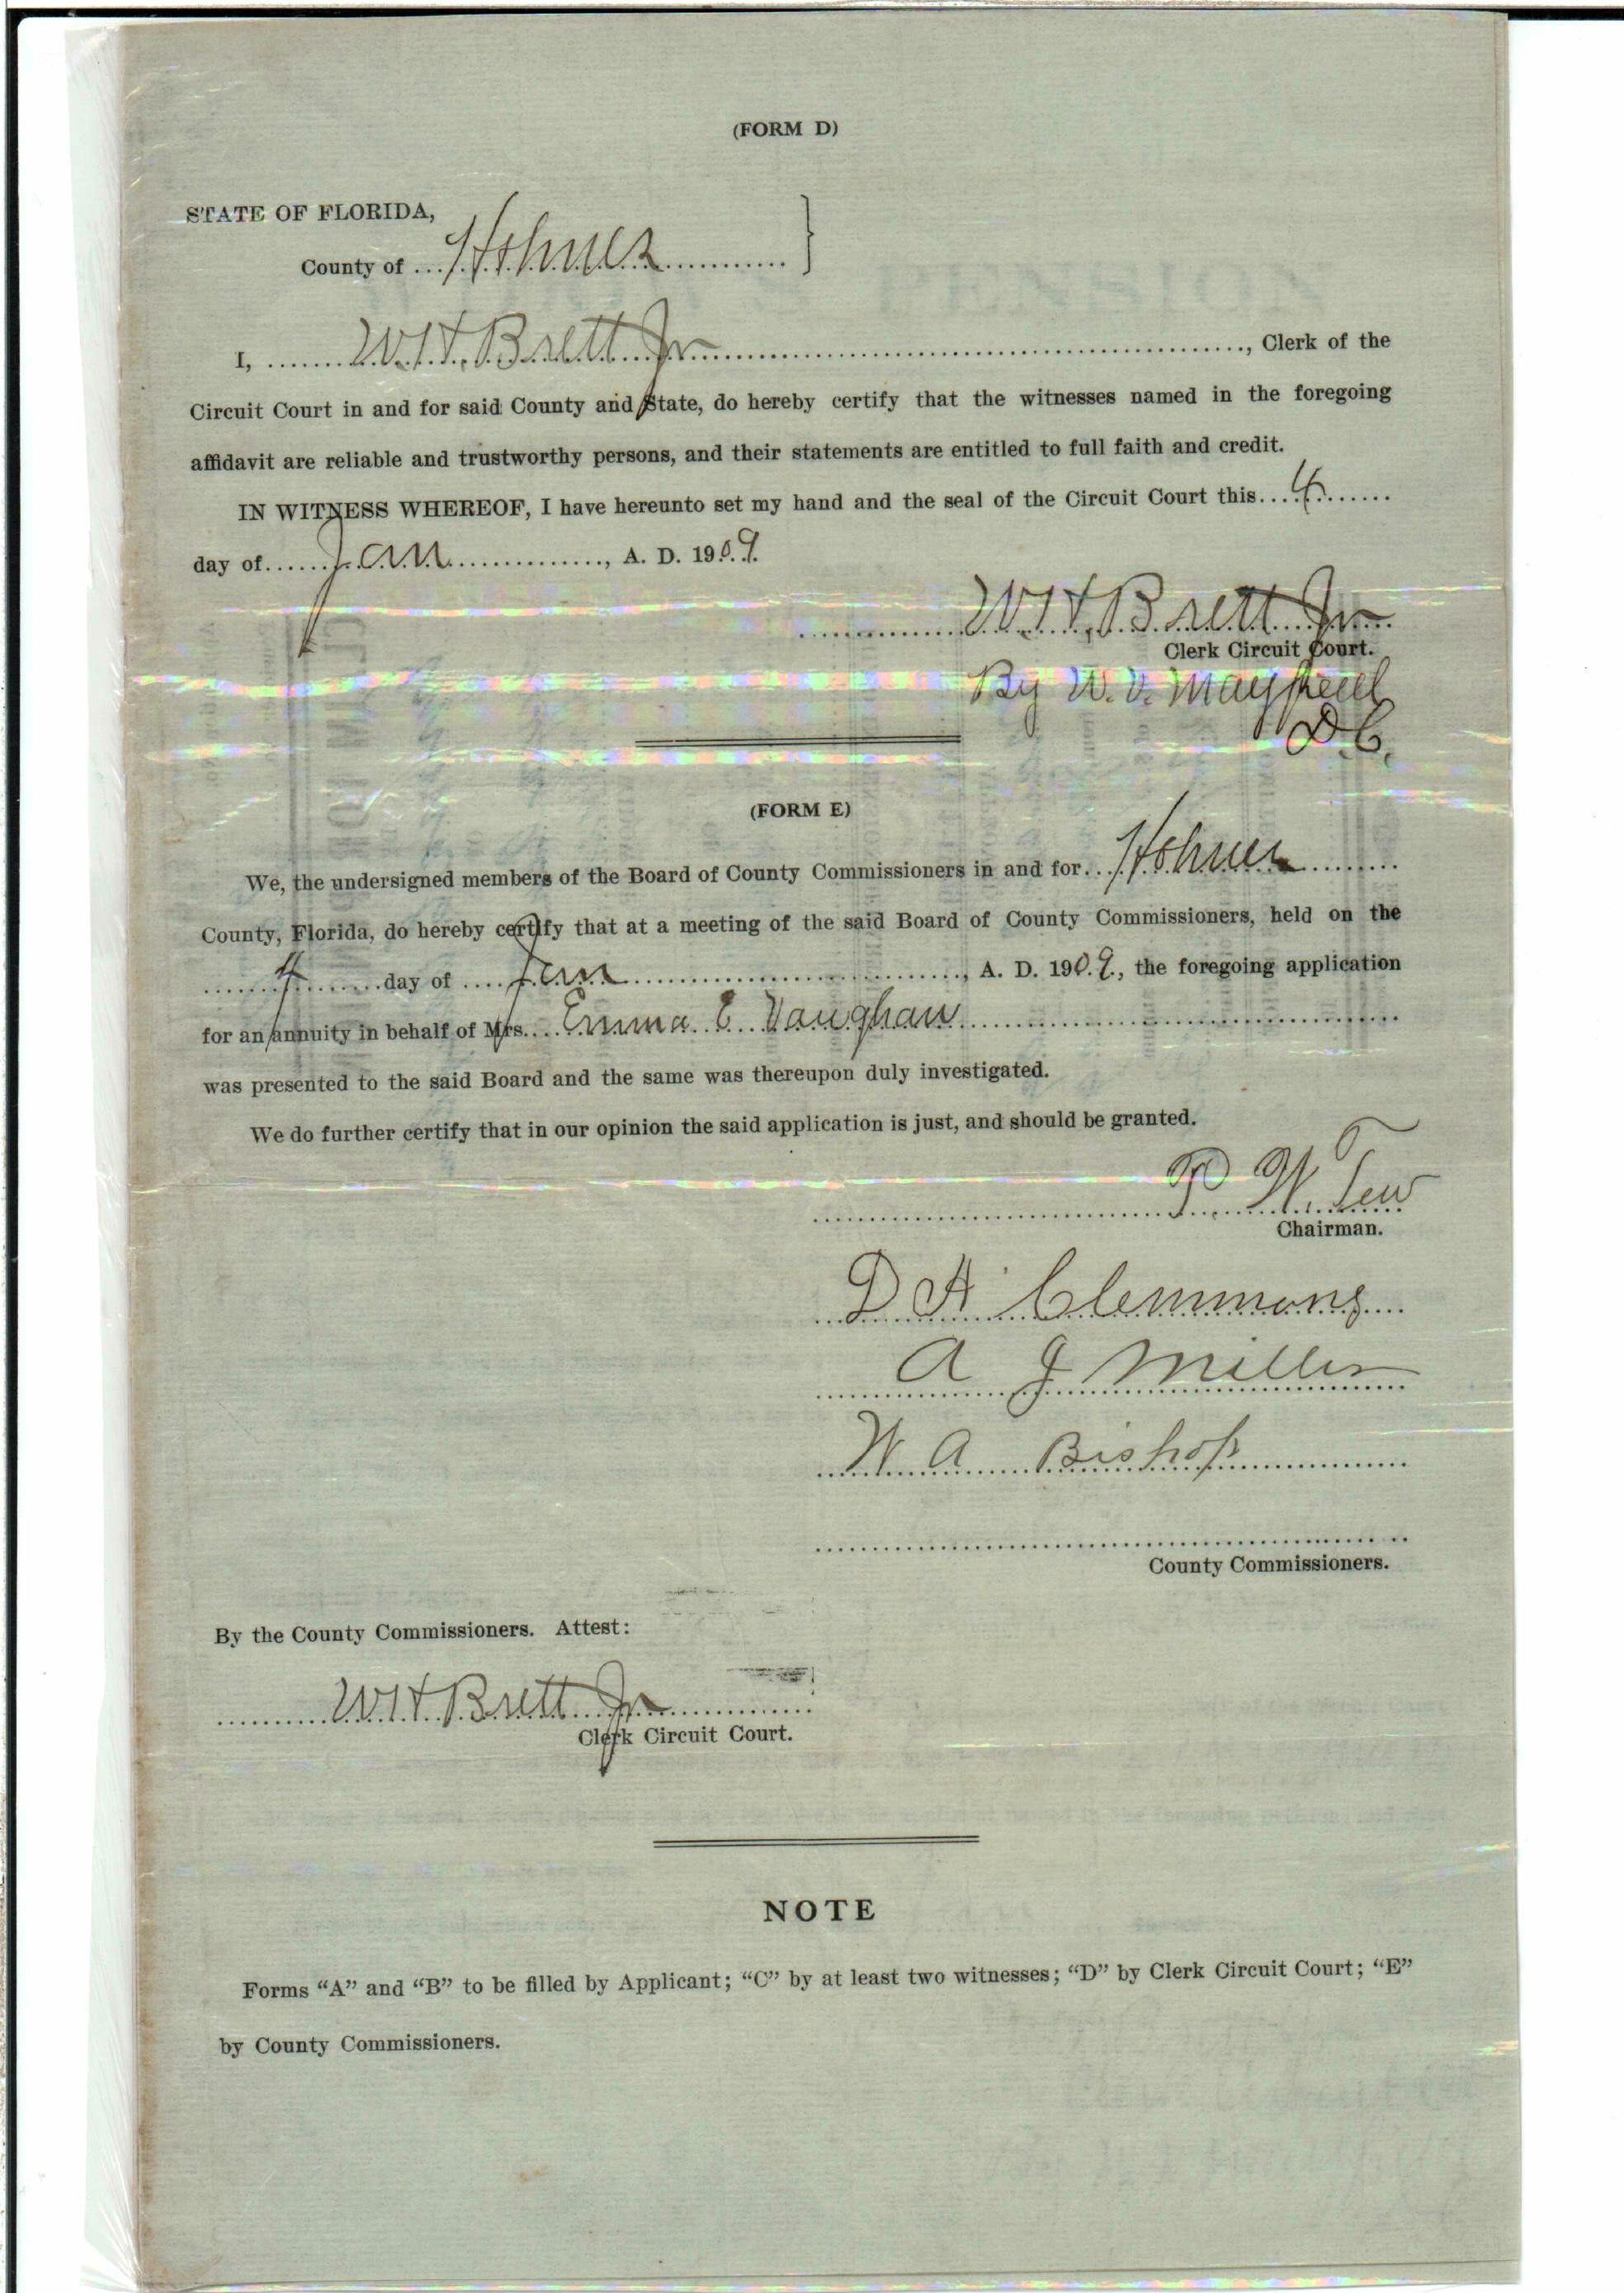 (FORM D)
STATE OF FLORIDA,
County of Holmes
I, W.H. Brett Jr, Clerk of the
Circuit Court in and for said County and State, do hereby certify that the witnesses named in the foregoing
affidavit are reliable and trustworthy persons, and their statements are entitled to full faith and credit.
IN WITNESS WHEREOF, I have hereunto set my hand and the seal of the Circuit Court this 4
day of Jan, A. D. 1909.
W.H. Brett Jr
Clerk Circuit Court.
By W. V. Mayfield
D.C.
(FORM E)
We, the undersigned members of the Board of County Commissioners in and for Holmes
County, Florida, do hereby certify that at a meeting of the said Board of County Commissioners, held on the
4 day of Jan, A. D. 1909, the foregoing application
for an annuity in behalf of Mrs. Emma E Vaughan
was presented to the said Board and the same was thereupon duly investigated.
We do further certify that in our opinion the said application is just, and should be granted.
P W. Tew
Chairman.
D A Clemmons
A J Miller
W A Bishop
County Commissioners.
By the County Commissioners. Attest:
W H Brett Jr
Clerk Circuit Court.
NOTE
Forms “A” and “B” to be filled by Applicant; “C” by at least two witnesses; “D” by Clerk Circuit Court; “E”
by County Commissioners.